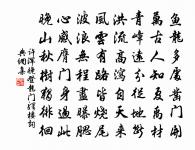 魚龍多處鑿門開
萬古人知夏禹材
青壁遠分從地斷
洪流高瀉自天來
風雲有路皆燒尾
波浪無程盡曝腮
心感膺門身過此
晚山秋樹獨徘徊
許渾晚登龍門驛樓詞
典網集